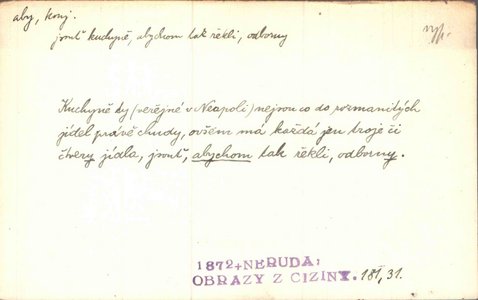 aby, konj.
jsouť kuchyně, abychom tak řekli, odborny
vyp.
Kuchyně ty (veřejné v Neapoli) nejsou co do rozmanitých
jídel právě chudy, ovšem má každá jen troje či
čtvery jídla, jsouť, abychom tak řekli, odborny.
1872+NERUDA,
OBRAZY Z CIZINY. 181, 31.